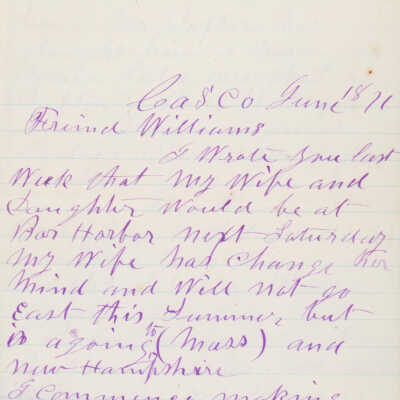 Casco June 18 /71
Freind Williams
I Wrote you last
Week that My Wife and
Daughter Would be at
Bar Harbor next Saturday
My Wife has Change her
Mind and Will not go
East this Summer, but
is agoing to (Mass) and
New Hampshire
I Commence making